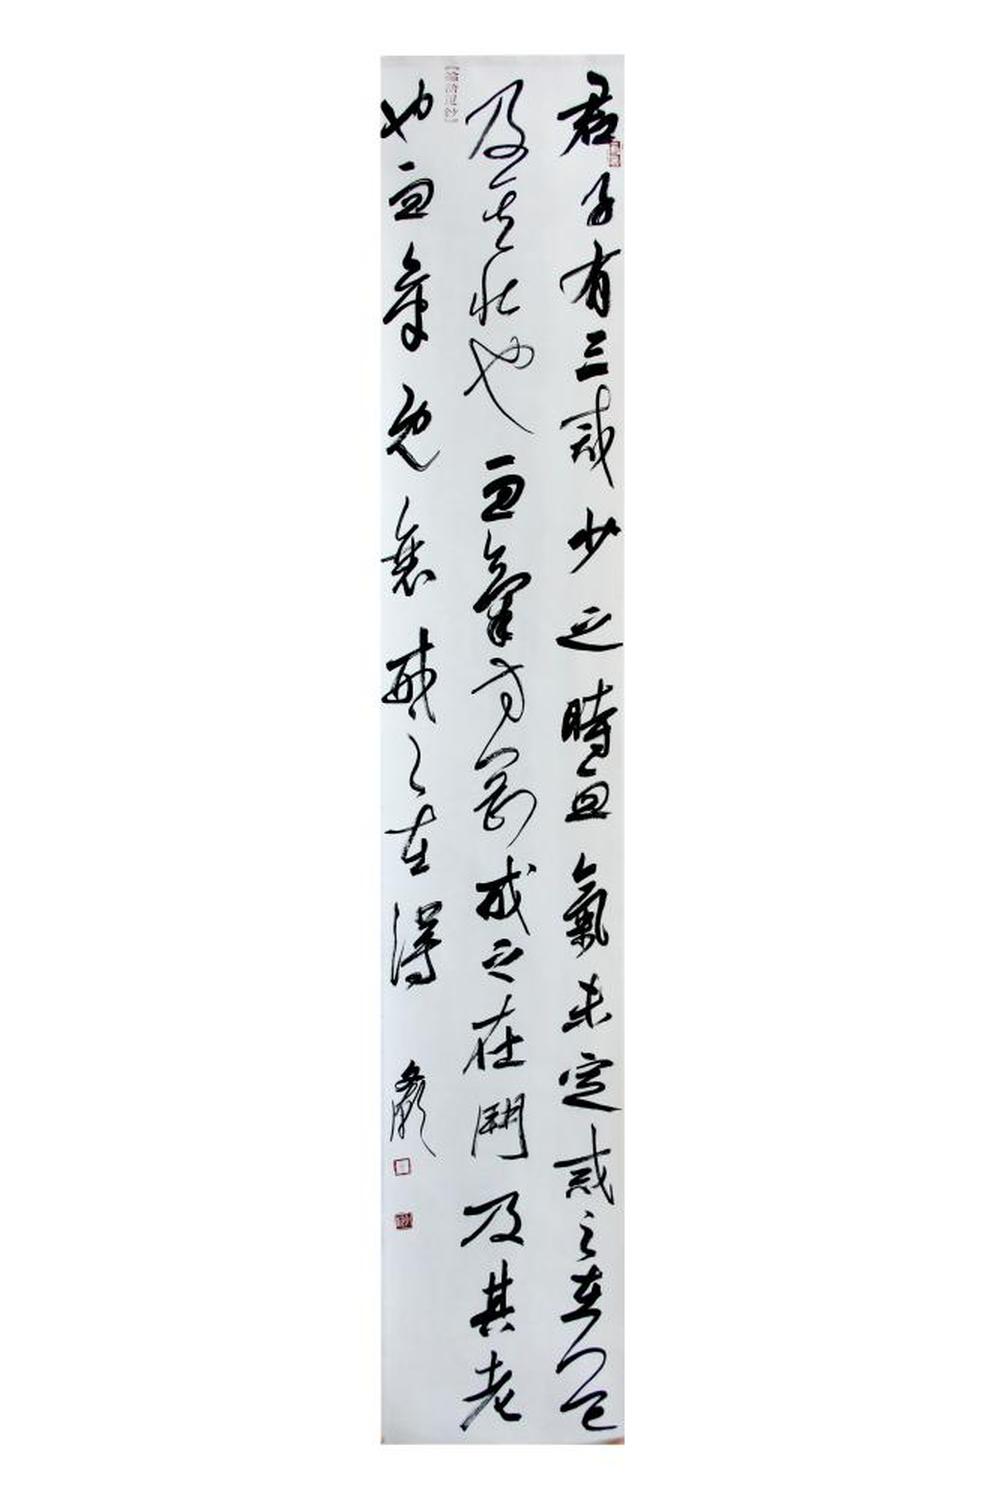 君子有三戒少之時血氣未定戒之在色
及其壯也血氣方剛戒之在鬭及其老
也血氣既衰戒之在得